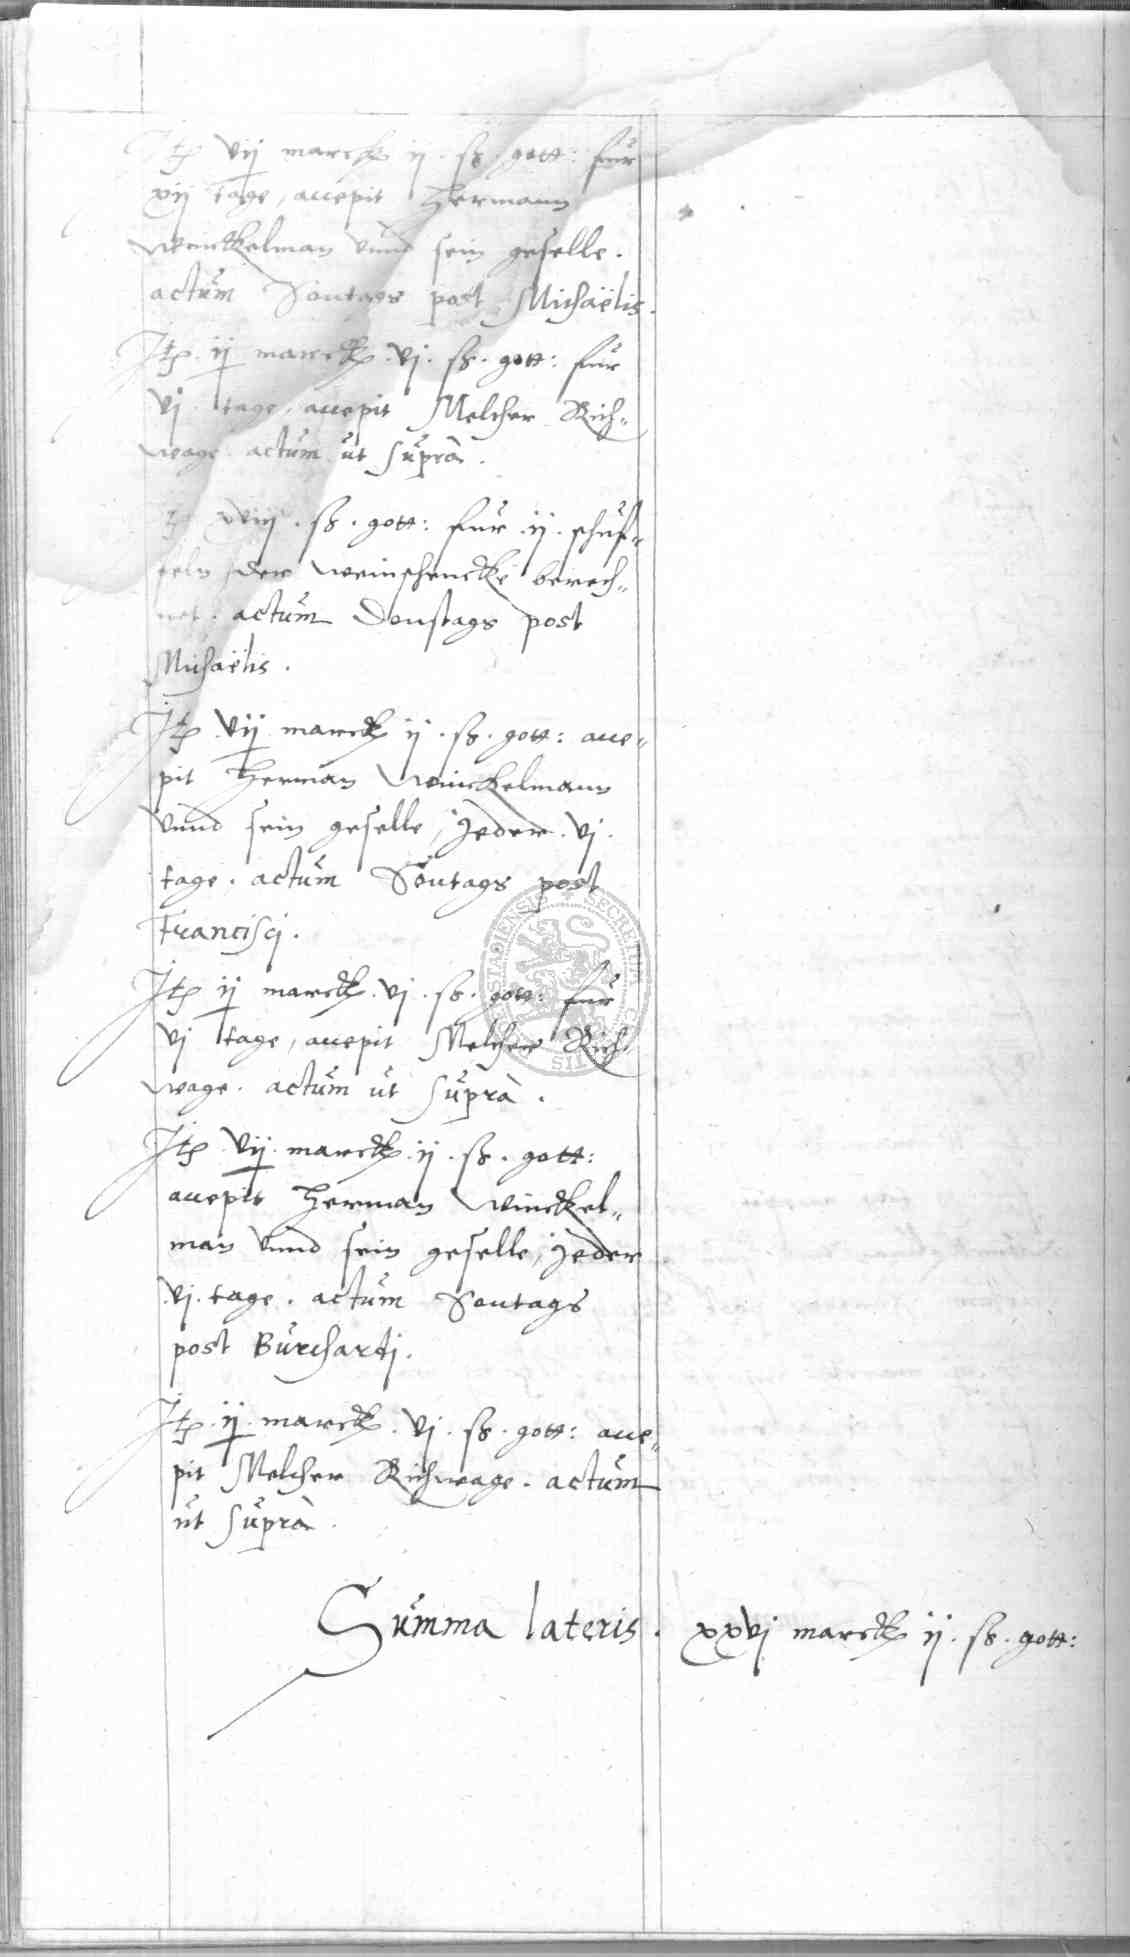 Itē vij marck ij . ſß . gott: fur
xij tage, accepit Hermann
Winckelman vnnd sein geselle .
actum Sontags post Michaëlis .
Itē . ij marck . vj . ſß . gott: fur
vj . tage . accepit Melcher Rich=
wage . actum ut suprà .
xviij . ſß . gott: fur . ij . schuf=
feln der weinschencke berech=
net . actum Donstags post
Michaëlis .
Itē . vij marck ij . ſß . gott: acce=
pit Herman Winckelmann
vnnd sein geselle, jeder . vj .
tage . actum Sontags post
Francisci .
Itē ij marck . vj . ſß . gott: fur
vj tage, accepit Melcher Rich
wage . actum ut suprà .
Itē vij . marck . ij . ſß . gott:
accepit Herman Winckel=
man vnnd sein geselle, jeder
. vj . tage . actum Sontags
post Burchardi .
Itē . ij . marck . vj . ſß . gott: acce=
pit Melcher Richwage . actum
ut suprà .
Summa lateris . xxvj marck ij . ſß . gott: